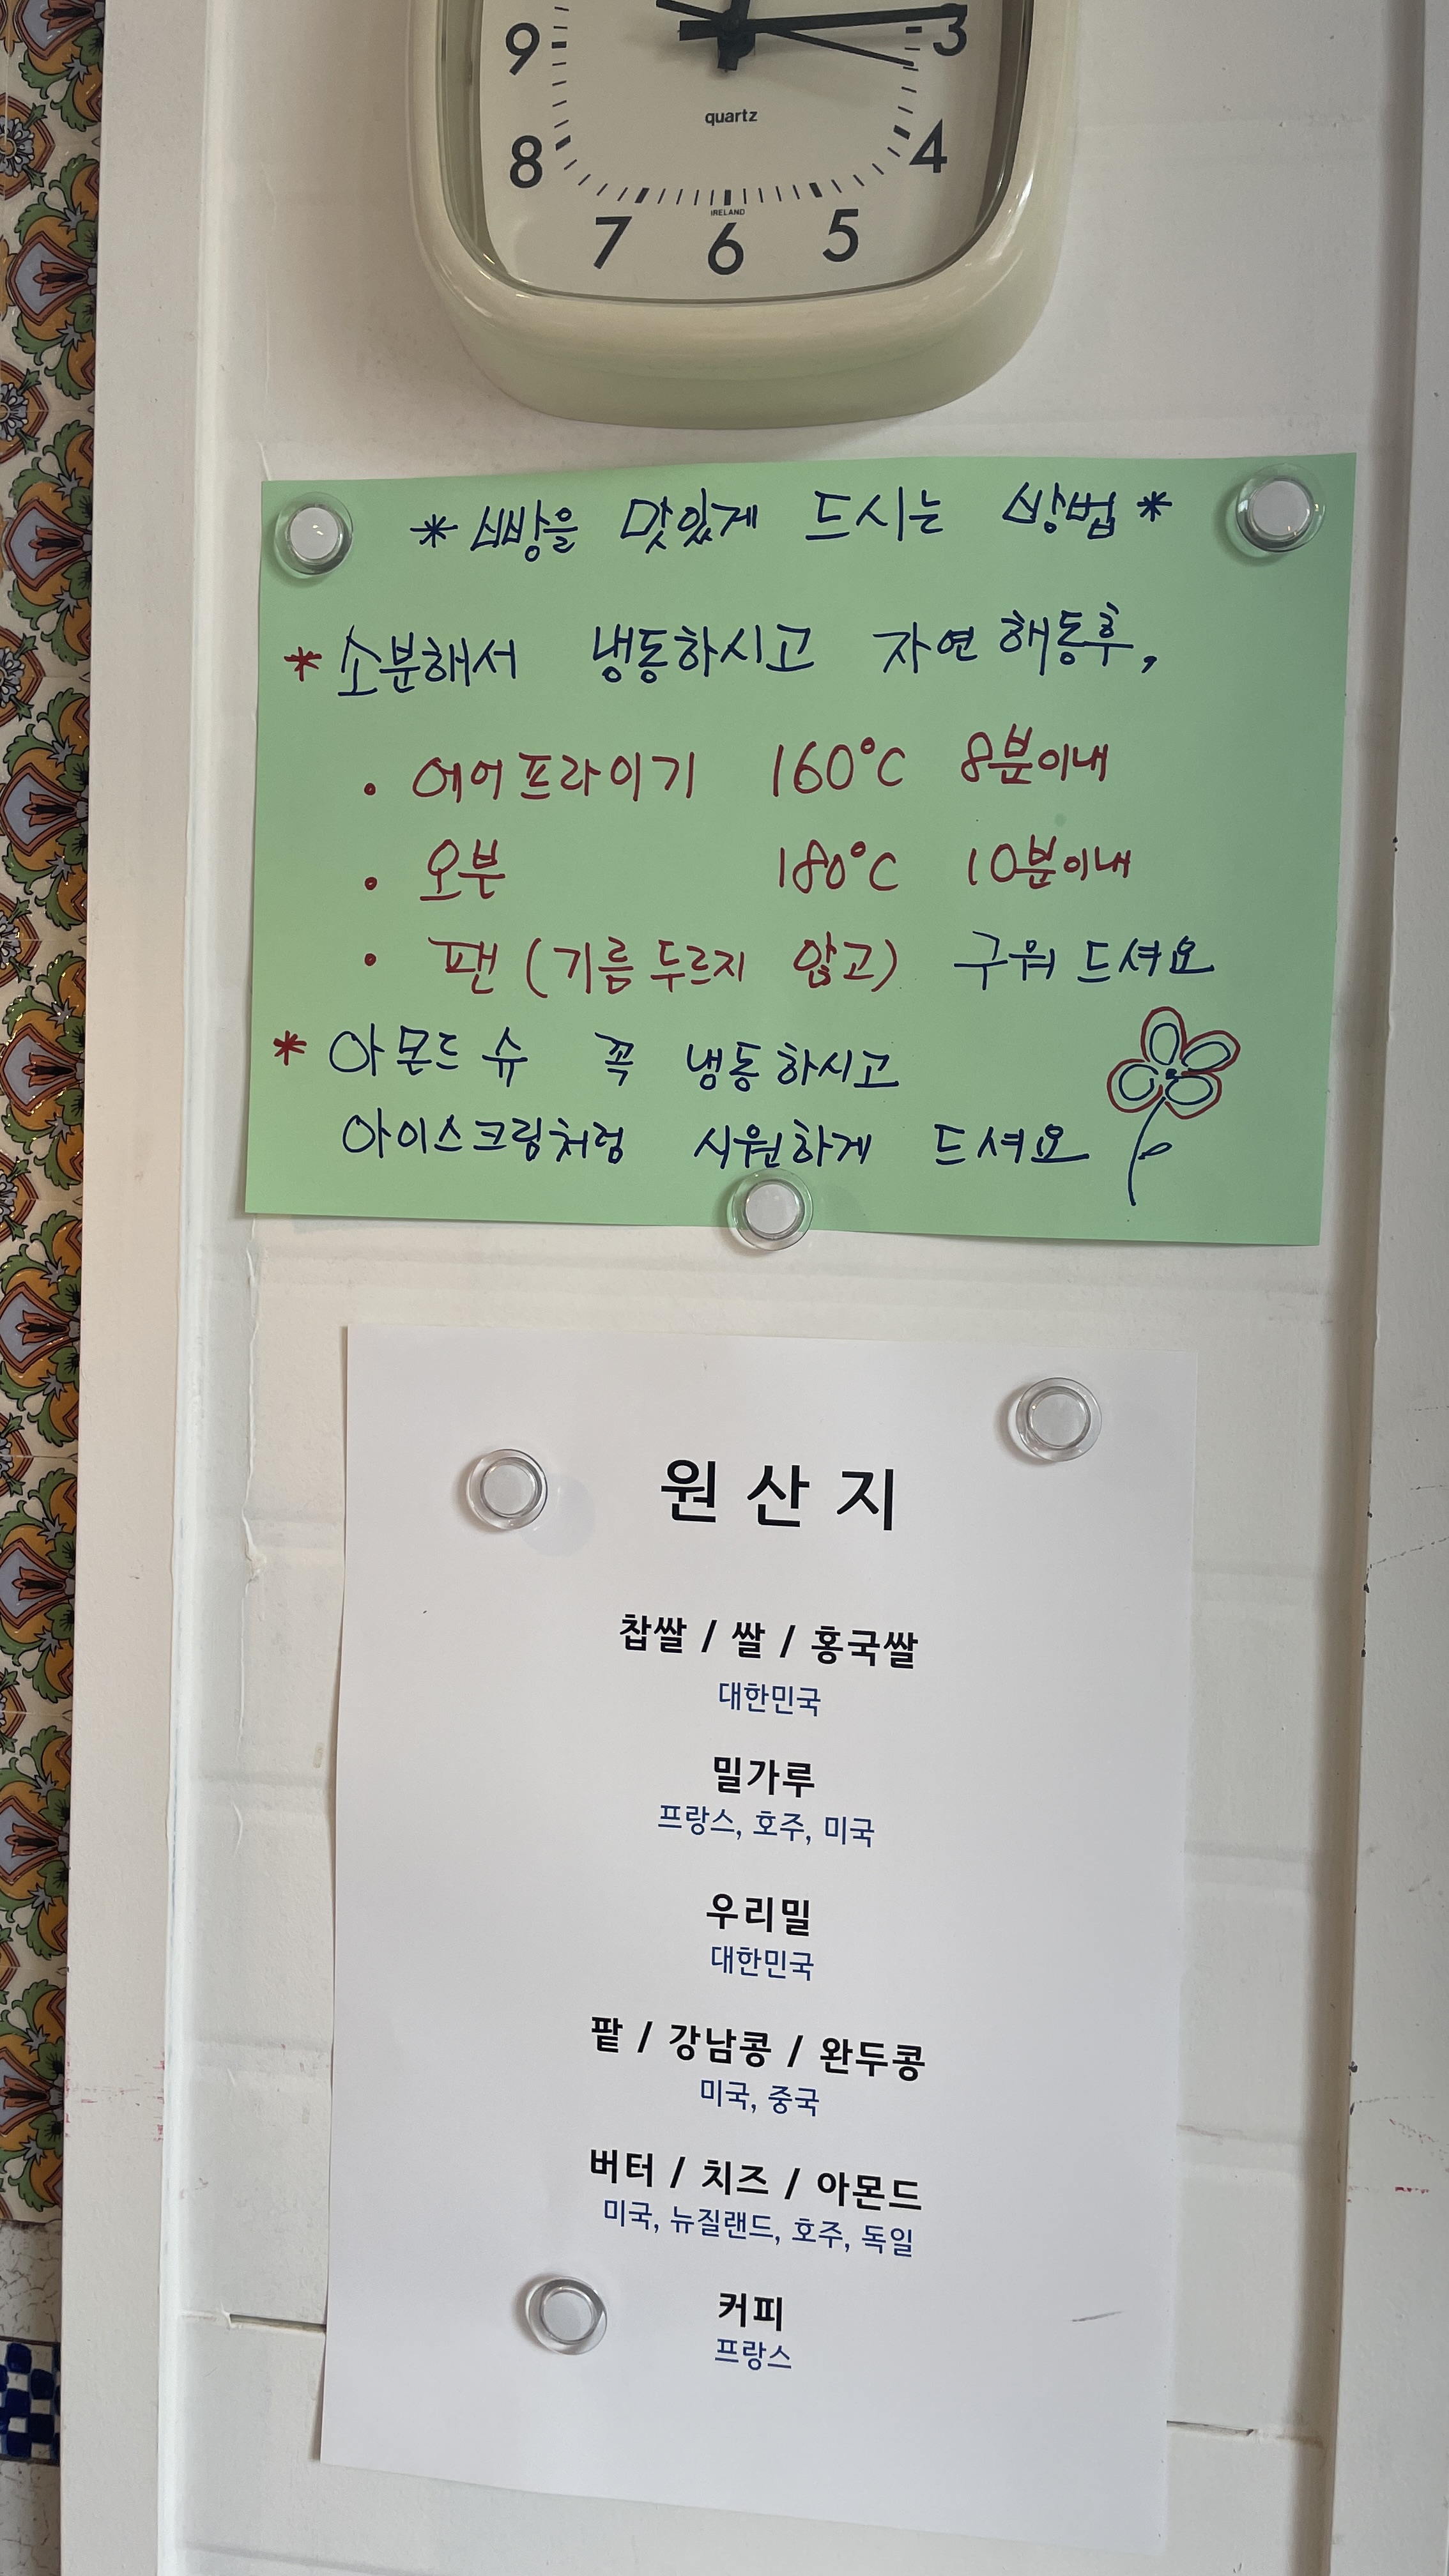 9
3
quartz
8
4
IRELAND
7 6 5
* 빵을 맛있게 드시는 방법 *
* 소분해서 냉동하시고 자연해동후,
• 에어프라이기 160°C 8분이내
• 오븐 180°C 10분이내
• 팬 (기름두르지 않고) 구워 드셔요
* 아몬드슈 꼭 냉동하시고
아이스크림처럼 시원하게 드셔요
원산지
찹쌀 / 쌀 / 홍국쌀
대한민국
밀가루
프랑스, 호주, 미국
우리밀
대한민국
팥 / 강남콩 / 완두콩
미국, 중국
버터 / 치즈 / 아몬드
미국, 뉴질랜드, 호주, 독일
커피
프랑스